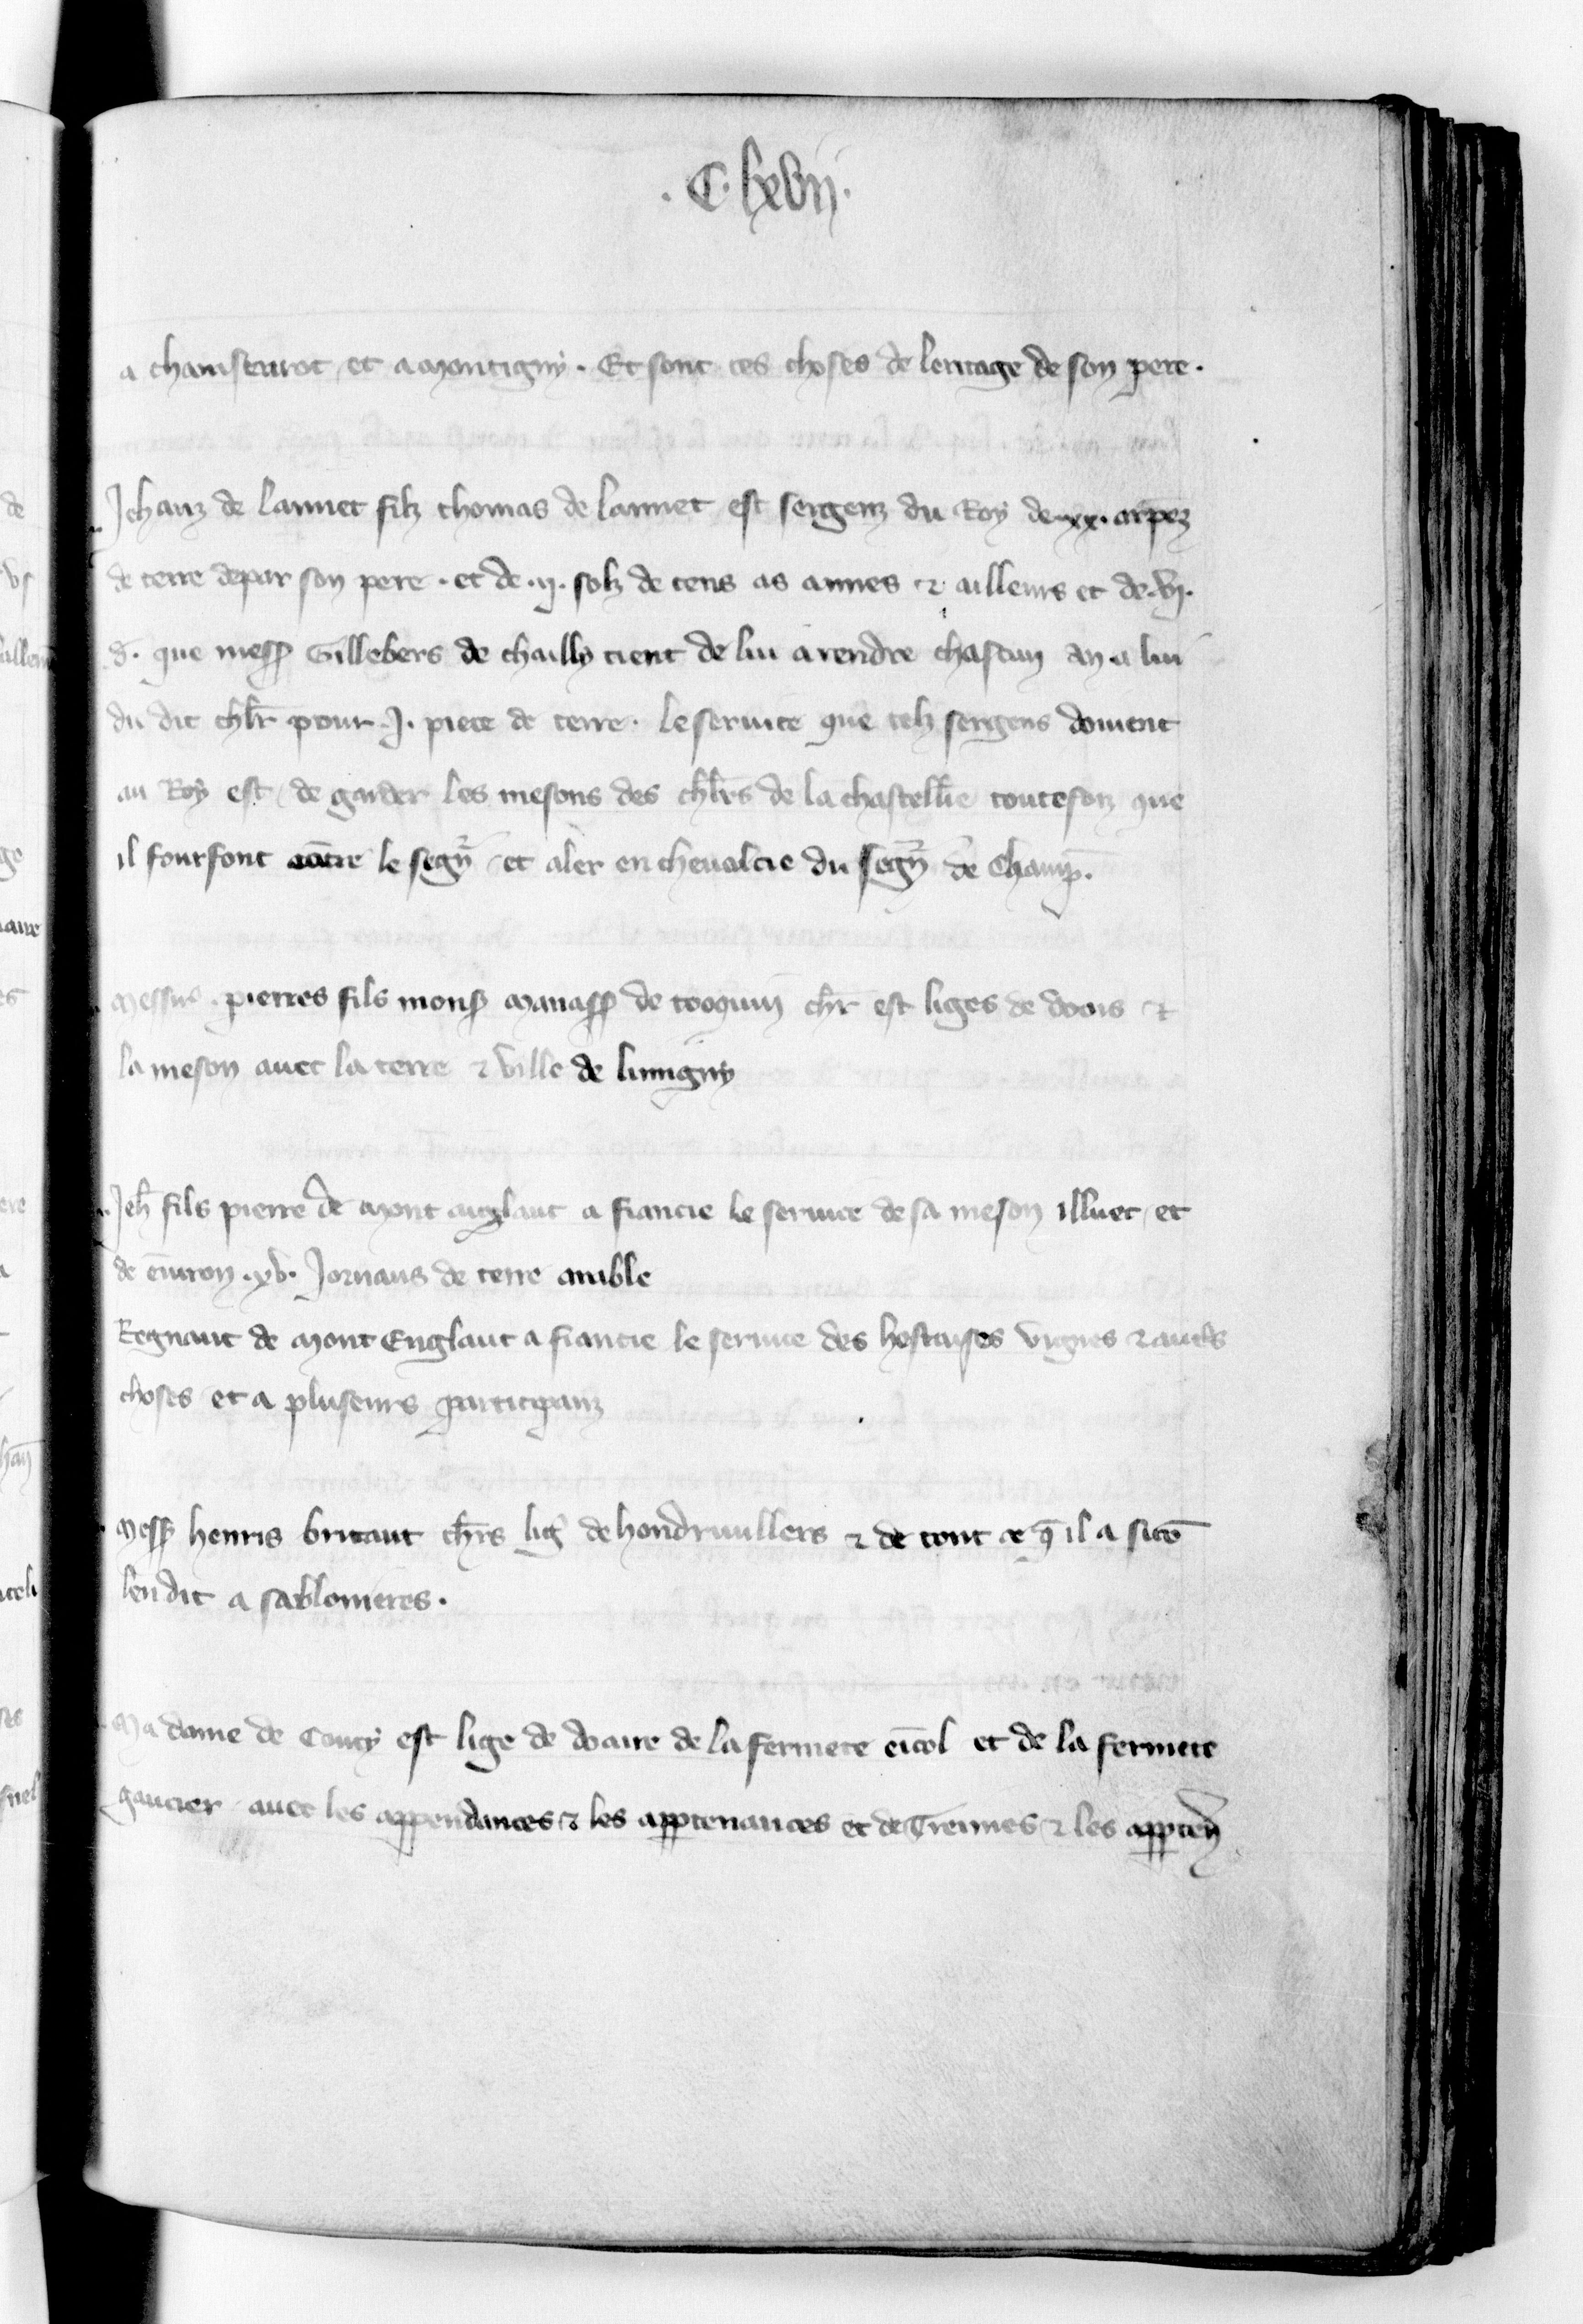 .C.lxvij.
a chamsenrot et a montigny. Et sont ces choses de leritage de son pere.
Jehanz de launet filz thomas de launet est sergenz du Roy de .xx. arpēz
de terre depar son pere. et de .ij. solz de cens as annes ⁊ ailleurs et de .vj.
d. que mess Gillebers de chailly tient de lui a rendre chascun an a lui
du dit chlr̄ pour .J. piece de terre. le seruice que telz sergens doiuent
au Roy est de garder les mesons des chlr̄s de la chastell̄ie toutefoiz que
il fourfont cōtre le segn̄r et aler en cheualcie du segn̄r de Champ̄.
Messires pierres fils mons manass de toquin chr̄ est liges de doois ⁊
la meson auec la terre ⁊ ville de lumigny
Jeh̄ fils pierre de mont anglaut a fiancie le seruice de sa meson illuec et
de ēuiron .xv. Jornaus de terre arable
Regnaut de mont Englaut a fiancie le seruice des hostaises vignes ⁊ aut's
choses et a pluseurs participanz
Mess henris britaut chr̄s lig' de hondruillers ⁊ de tout ce q̄ il a sicō
len dit a sablonieres.
Ma dame de Coucy est lige de doaire de la fermete eīcol et de la fermete
gaucier auec les appendances ⁊ les apptenances et de Tresmes ⁊ les apptēn